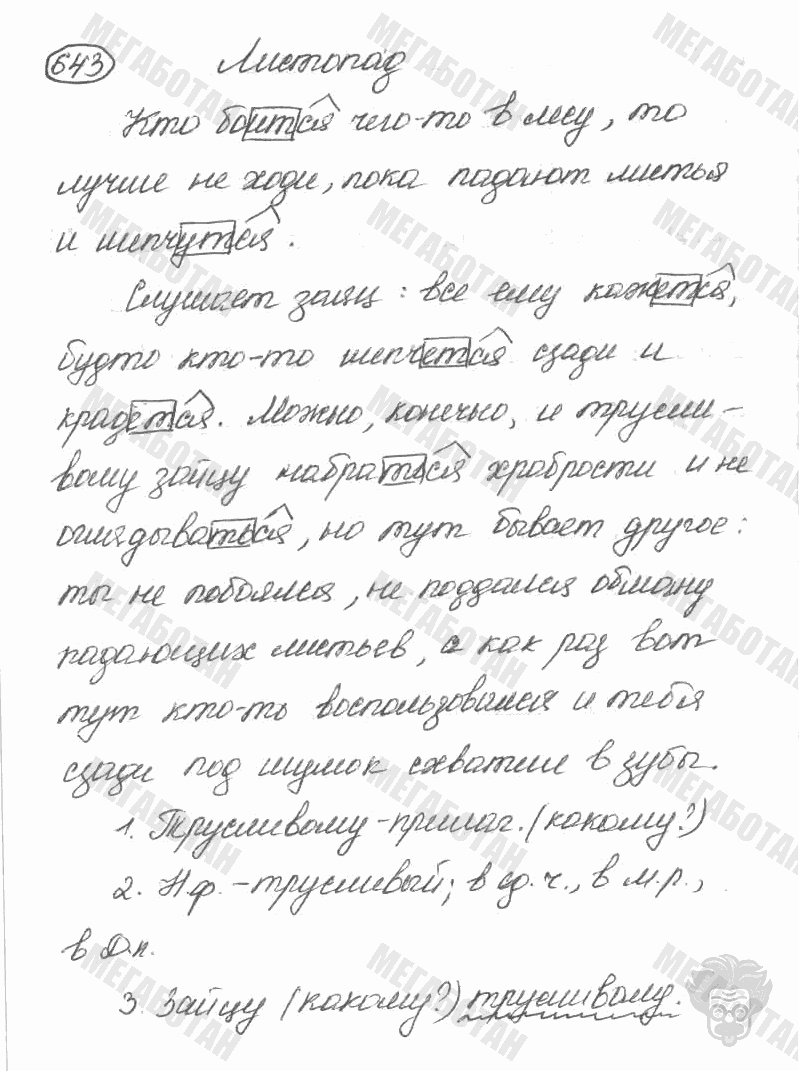 643 Листопад
Кто боится чего-то в лесу, то
лучше не ходи, пока падают листья
и шепчутся.
Слушает заяц: все ему кажется,
будто кто-то шепчется сзади и
крадется. Можно, конечно, и трусли-
вому зайцу набраться храбрости и не
оглядываться, но тут бывает другое:
ты не побоялся, не поддался обману
падающих листьев, а как раз вот
тут кто-то воспользовался и тебя
сзади под шумок схватит в зубы.
1. Трусливому - прилаг. (какому?)
2. Н.ф. - трусливый; в ед.ч., в м.р.,
в Д.п.
3. Зайцу (какому?) трусливому.
МЕГАБОТАН